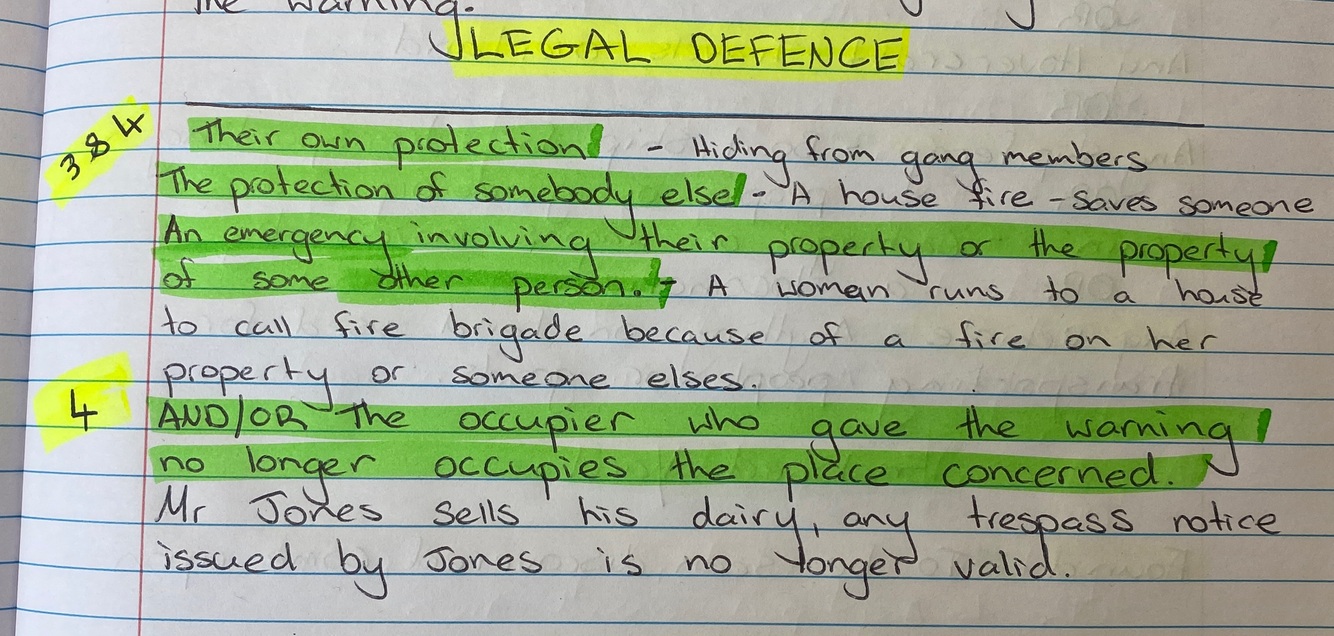 the warning.
LEGAL DEFENCE
3 & 4 Their own protection - Hiding from gang members
The protection of somebody else - A house fire - saves someone
An emergency involving their property or the property
of some other person. - A woman runs to a house
to call fire brigade because of a fire on her
property or someone elses.
4 AND/OR The occupier who gave the warning
no longer occupies the place concerned.
Mr Jones sells his dairy, any trespass notice
issued by Jones is no longer valid.